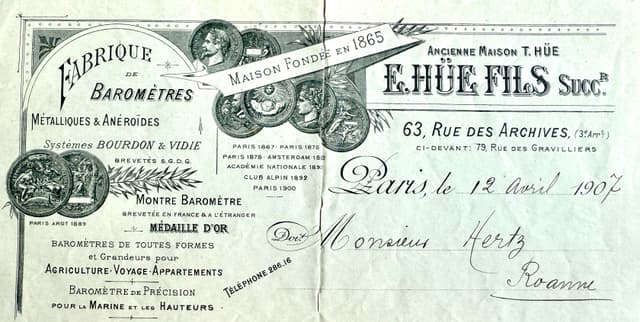 FABRIQUE
DE
BAROMÈTRES
MÉTALLIQUES & ANÉROÏDES
Systèmes BOURDON & VIDIE
BREVETÉS S.G.D.G.
MAISON FONDÉE EN 1865
PARIS 1867 · PARIS 1875
PARIS 1878 · AMSTERDAM 18
ACADÉMIE NATIONALE 18
CLUB ALPIN 1892
PARIS 1900
PARIS ARGT 1889
MONTRE BAROMÈTRE
BREVETÉE EN FRANCE & A L'ÉTRANGER
MÉDAILLE D'OR
BAROMÈTRES DE TOUTES FORMES
et Grandeurs pour
AGRICULTURE · VOYAGE · APPARTEMENTS
BAROMÈTRE DE PRÉCISION
POUR LA MARINE ET LES HAUTEURS
TÉLÉPHONE 286.16
ANCIENNE MAISON T. HÜE
E. HÜE FILS SUCCR
63, RUE DES ARCHIVES, (3e Arrt)
CI-DEVANT: 79, RUE DES GRAVILLIERS
Paris, le 12 Avril 1907
Doit Monsieur Hertz
Roanne